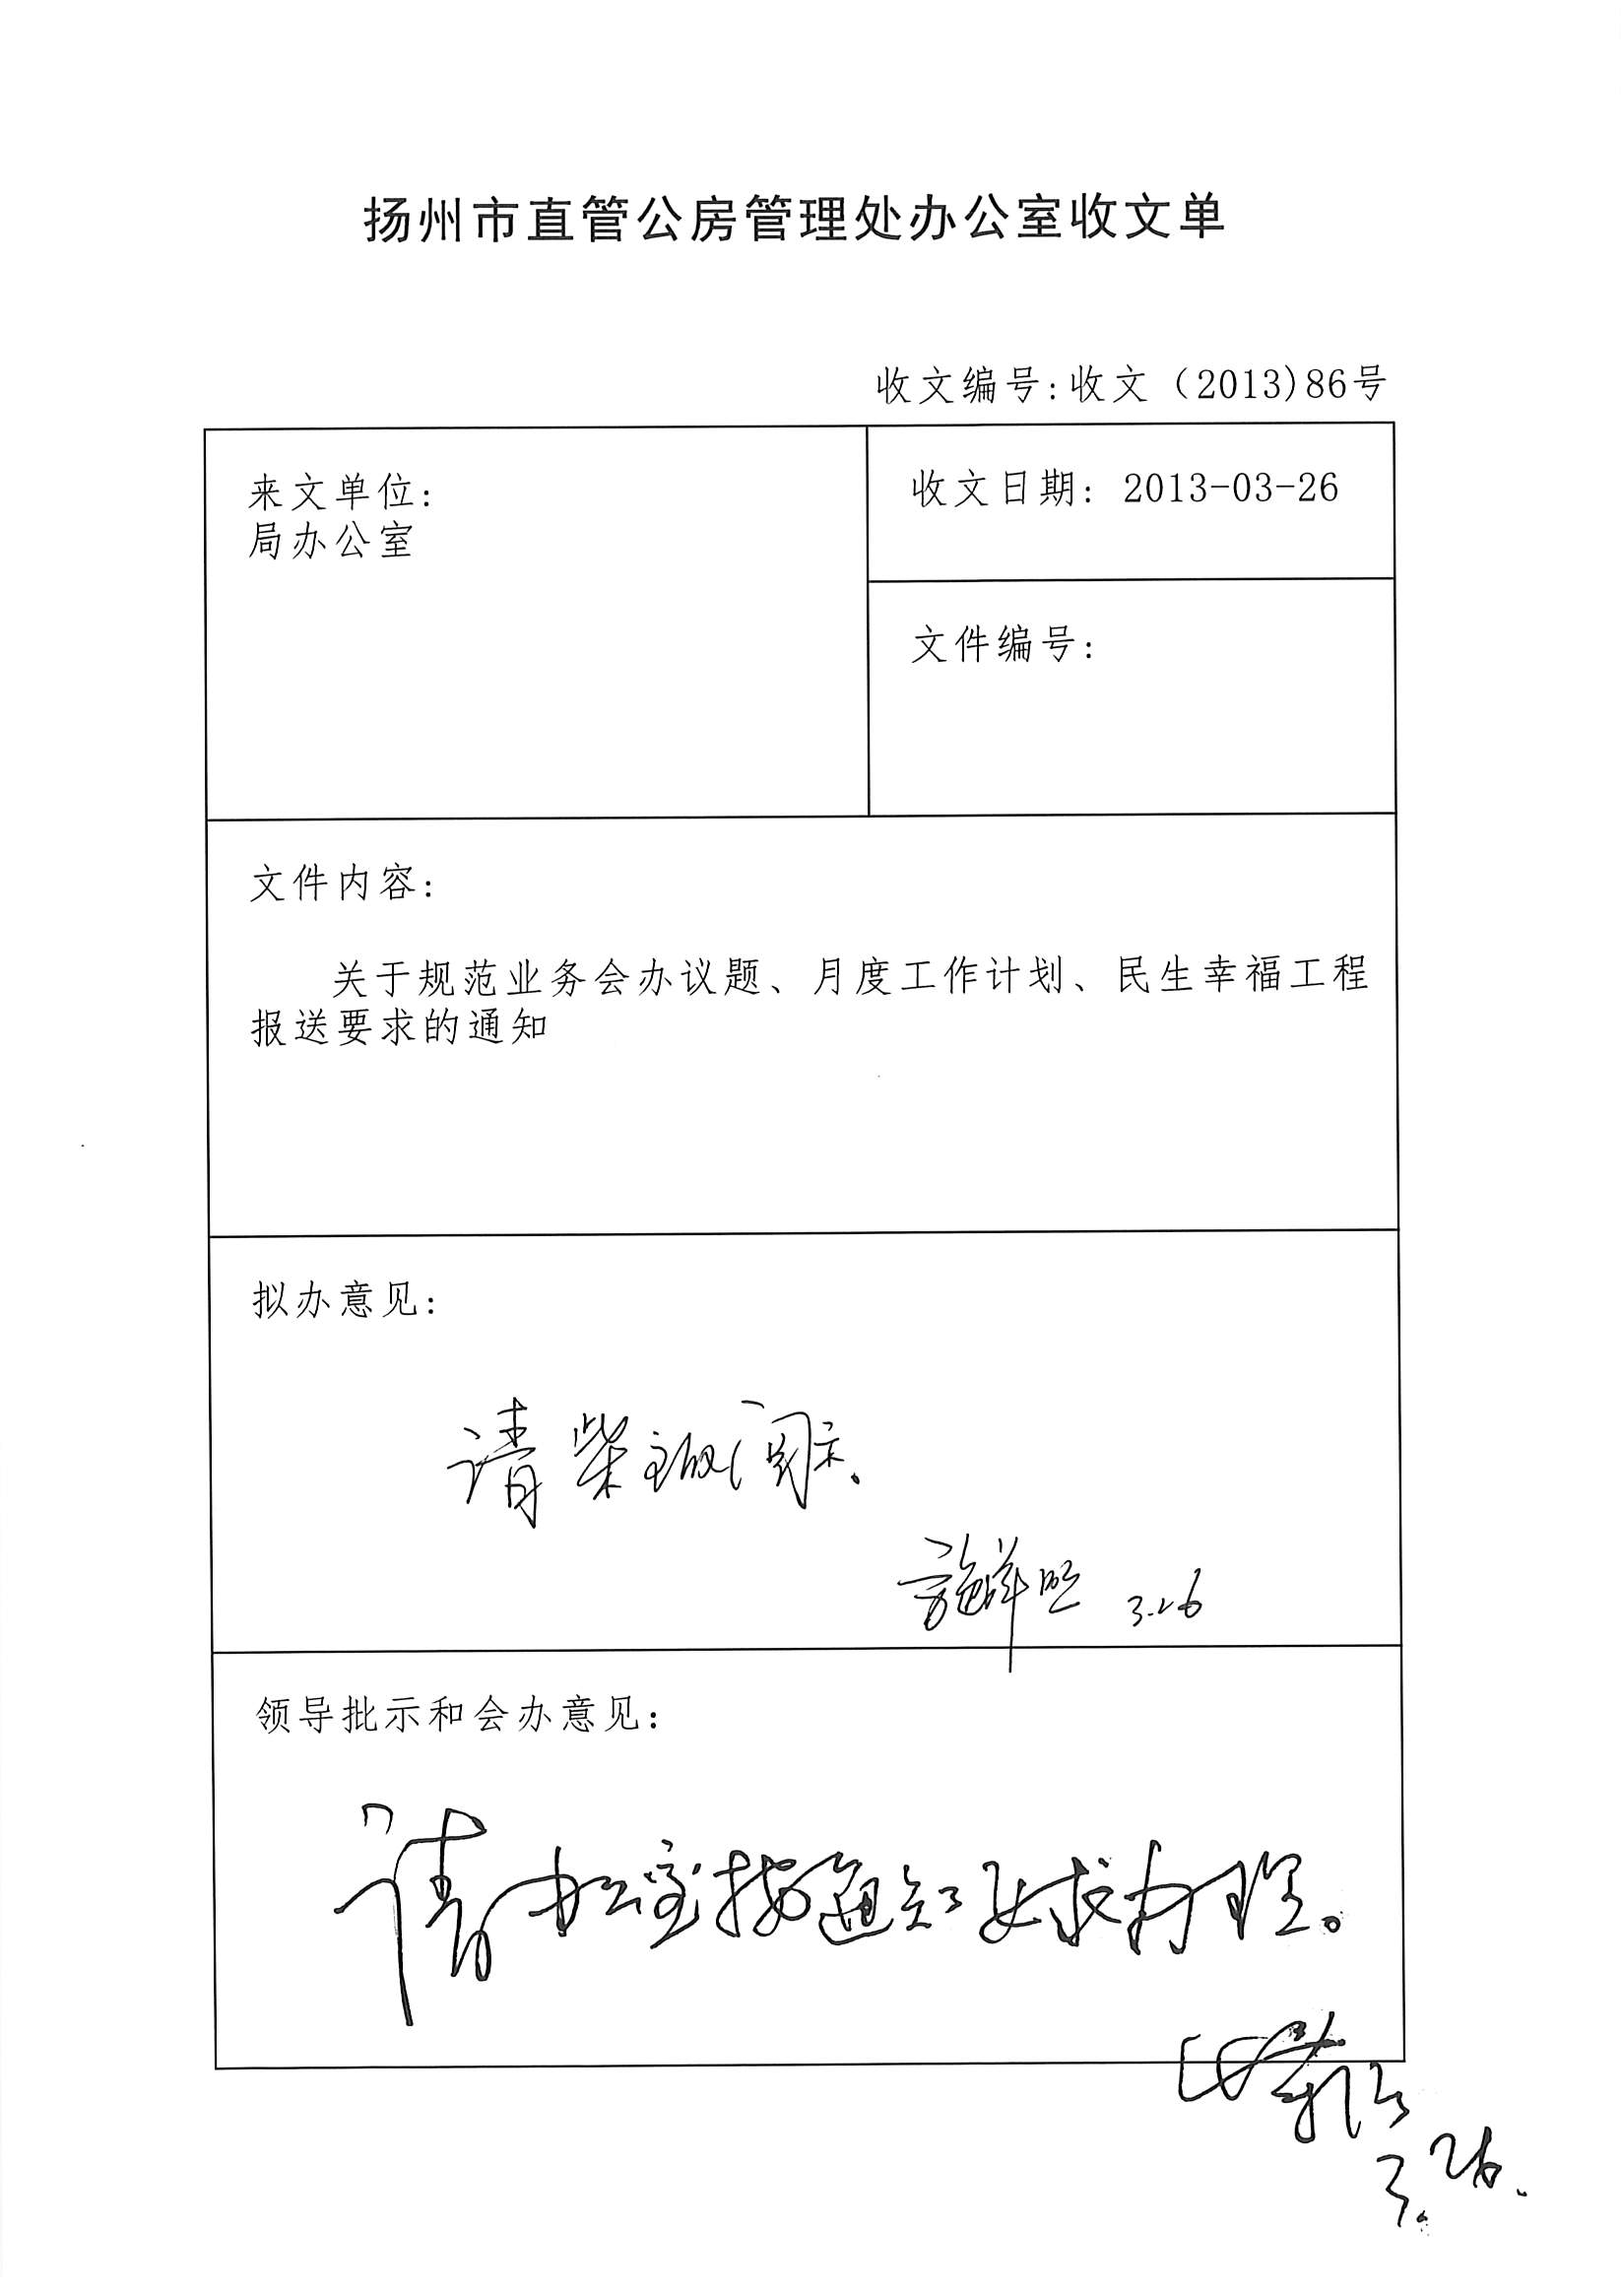 扬州市直管公房管理处办公室收文单
收文编号:收文（2013)86号
来文单位:
局办公室
收文日期: 2013-03-26
文件编号:
文件内容:
关于规范业务会办议题、月度工作计划、民生幸福工程
报送要求的通知
拟办意见:
请柴主任阅示、
3.26
领导批示和会办意见:
请办公室按通知要求办理。
3.26.